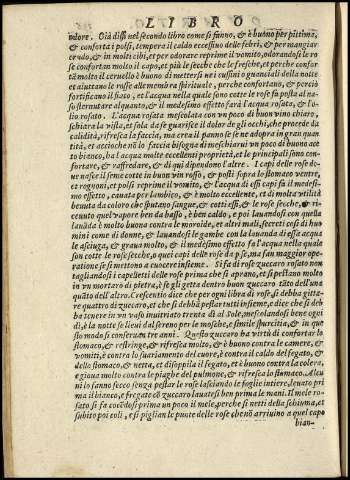 LIBRO
odore. Già dissi nel secondo libro come si fanno, & è buono per pittima,
& conforta i polsi, tempera il caldo eccessiuo delle febri, & per mangiar
crudo, & in molti cibi, et per odorare reprime il vomito, odorandosi le ro
se confortan molto il capo, et più le secche che le fresche, et perche confor
tā molto il ceruello è buono di mettersi nei cussini o guanciali della notte
et aiutano le rose alla memoria spirituale, perche confortano, & perciò
fortificano il fiato, et l'acqua nella quale sono cotte le rose fa posta al na-
so sternutare alquanto, & il medesimo effetto farà l'acqua rosata, & l'o-
lio rosato. L'acqua rosata mescolata con vn poco di buon vino chiaro,
schiara la vista, et sola da se guarisce il dolor de gli occhi, che procede da
calidità, rifresca la faccia, ma crea il panno se se ne adopra in gran quan
tità, et accioche nō lo faccia bisogna di meschiarui vn poco di buono ace
to bianco, ha l'acqua molte eccellenti proprietà, et le principali sono con-
fortare, & raffredare, & di qui dipendono l'altre. I capi delle rose do-
ue nasce il seme cotte in buon vin rosso, & posti sopra lo stomaco ventre,
et rognoni, et polsi reprime il vomito, & l'acqua di essi capi fa il medesi-
mo effetto, cauata per lambico, & è molto eccellente, et di molta vtilità
beuuta da coloro che sputano sangue, & cotti essi, & le rose secche, & ri-
ceuuto quel vapore ben da basso, è ben caldo, e poi lauandosi con quella
lauāda è molto buono contra le moroide, et altri mali, secreti cosi di huo
mini come di donne, & lauandosi le gambe con la lauanda di essa acqua
le asciuga, & graua molto, & il medesimo effetto fa l'acqua nella quala
son cotte le rose secche, o quei capi delle rose da p se, ma fan maggior ope-
ratione se si mettono a cuocere insieme. Si fa di rose zuccaro rosato non
tagliandosi i capelletti delle rose prima che si aprano, et si pestano molto
in vn mortaro di pietra, & se gli getta dentro buon zuccaro tāto dell'una
quāto dell'altro. Crescentio dice che per ogni libra di rose, si debba gitta-
re quattro di zuccaro, et che si debbā pestar tutti insieme, e dice che si deb
ba tenere in vn vaso inuitriato trenta dì al Sole, mescolandosi bene ogni
dì, & la notte se lieui dal sereno per le mosche, e simile sporcitia, & in que
sto modo si conseruano tre anni. Questo zuccaro ha virtù di confortar lo
stomaco, & restringe, & rifresca molto, & è buono contra le camere, &
vomiti, è contra lo suariamento del cuore, è contra il caldo del fegato, &
dello stomaco, & netta, et disoppila il fegato, et è buono contra la colera,
e gioua molto contra le piaghe del pulmone, & rifresca lo stomaco. Alcu
ni lo fanno secco senza pestar le rose lasciando le foglie intiere, leuato pri
ma il bianco, e fregate cō zuccaro lauatesi ben prima le mani. Il mele ro-
sato si fa cocēdosi prima vn poco il mele, perche si netti della schiuma, et
subito poi coli, e si piglian le punte delle rose che nō arriuino a quel capo
bian-